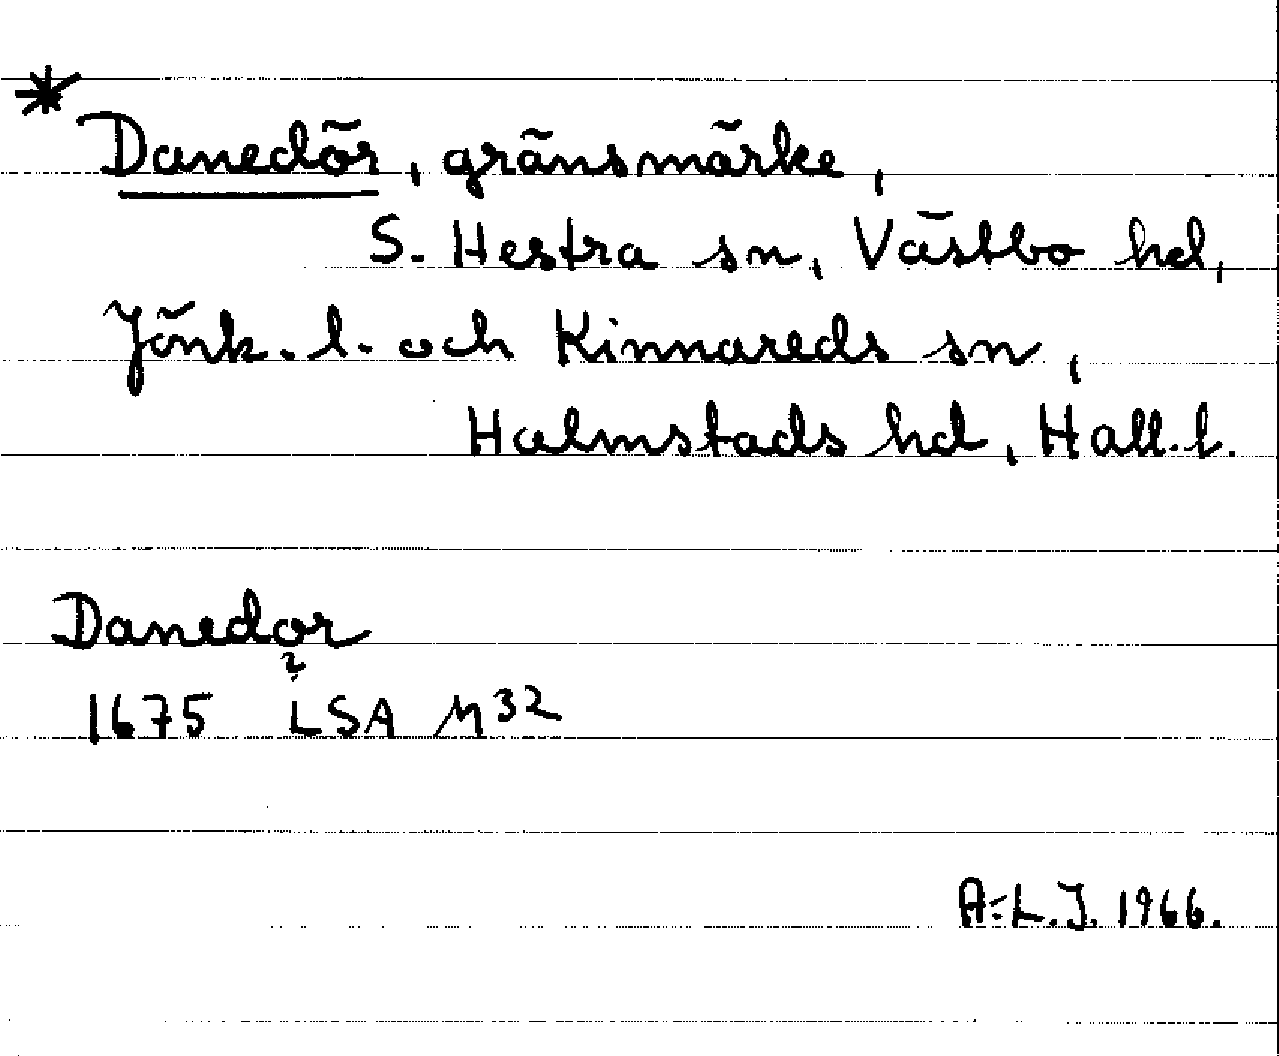 * Danedör, gränsmärke,
S. Hestra sn, Västbo hd,
Jönk. l. och Kinnareds sn,
Halmstads hd, Hall. l.
Danedor
?
1675 LSA M32
A-L.J. 1966.